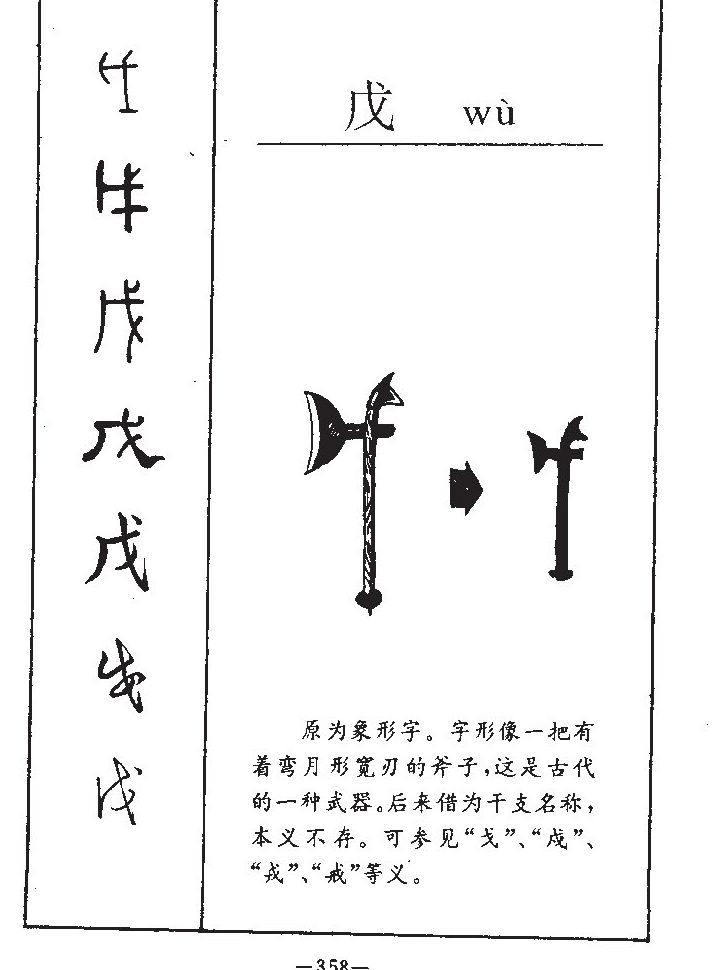 戊 wù
原为象形字。字形像一把有
着弯月形宽刃的斧子,这是古代
的一种武器。后来借为干支名称,
本义不存。可参见“戈”、“戍”、
“戎”、“戒”等义。
—358—